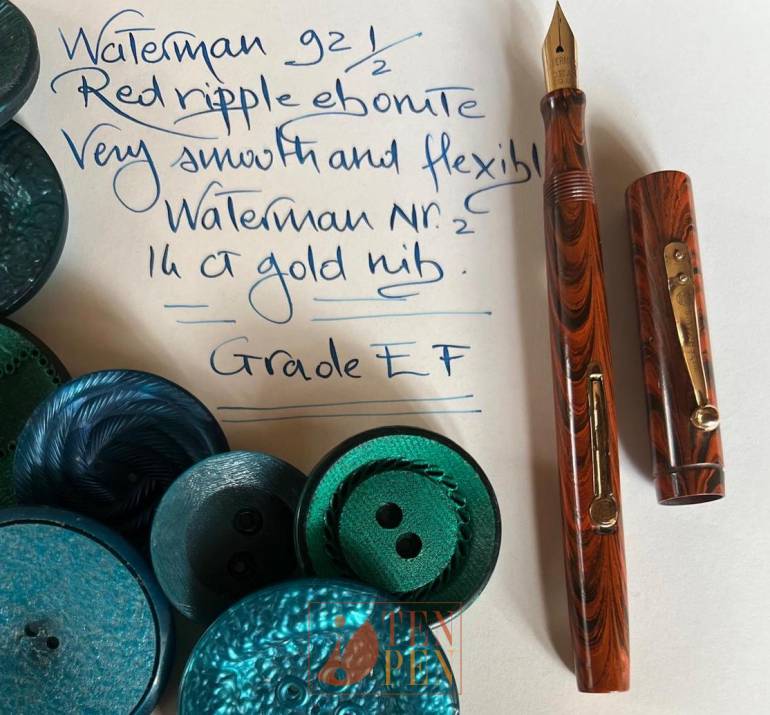 Waterman 92 1/2
Red ripple ebonite
Very smooth and flexibl
Waterman Nr. 2
14 ct gold nib.
Grade EF
TEN
PEN